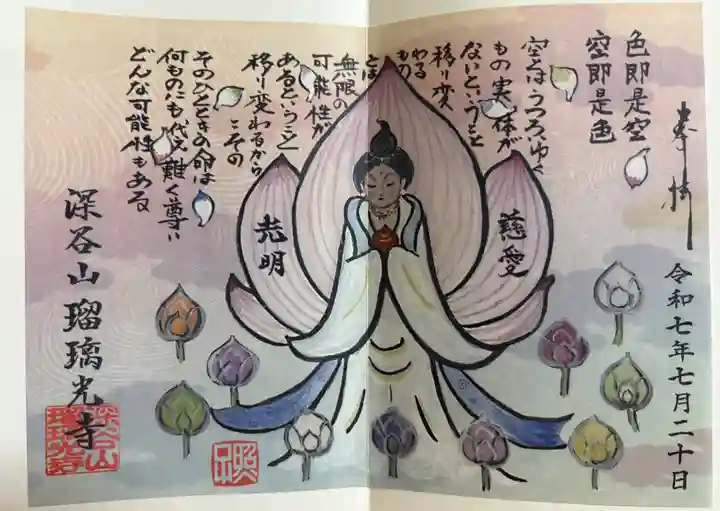 奉拝
令和七年七月二十日
色即是空
空即是色
空とはうつろいゆく
もの実体が
ないということ
移り変
わる
もの
とは
無限の
可能性が
あるということ
移り変わるから
こその
そのひとときの命は
何ものにも代え難く尊い
どんな可能性もある
慈愛
光明
深谷山瑠璃光寺